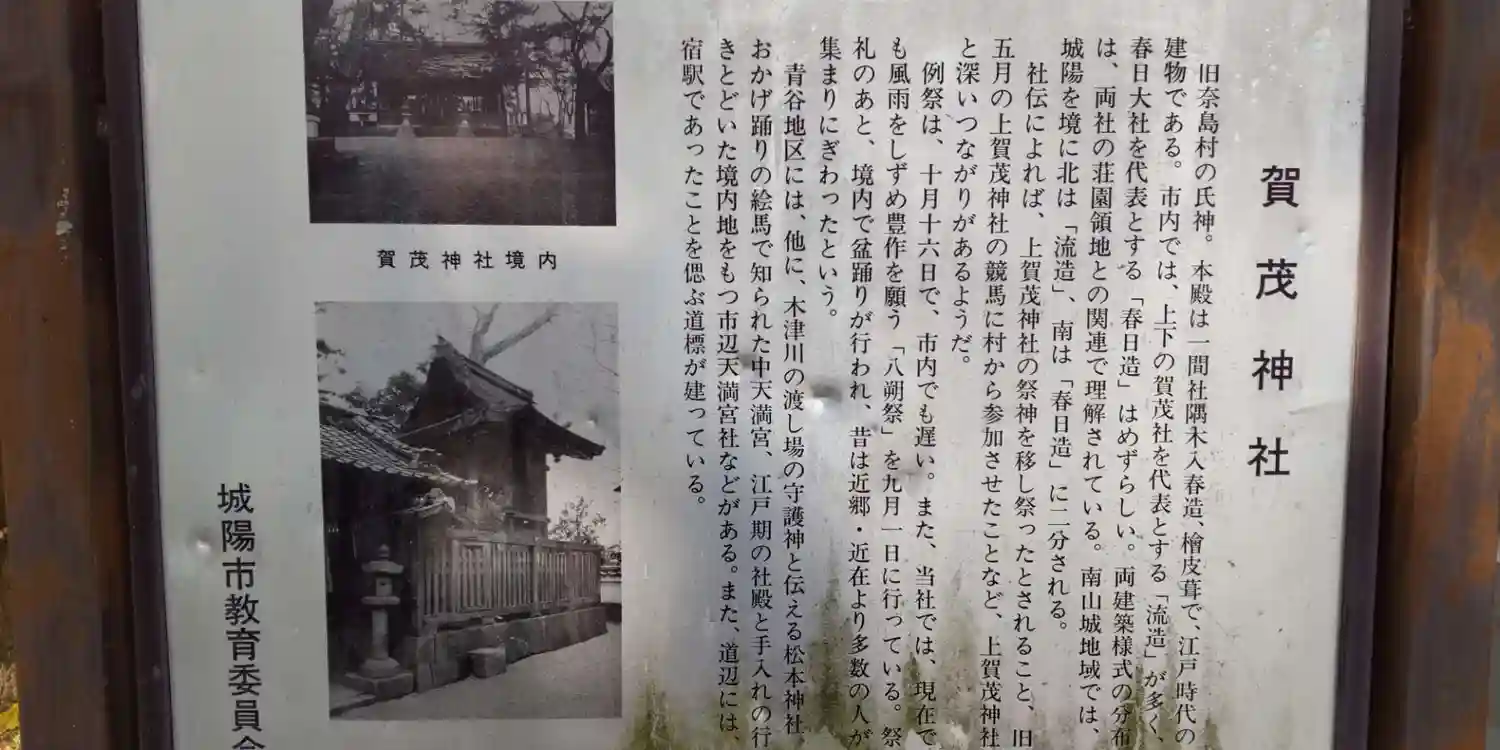 賀茂神社
旧奈島村の氏神。本殿は一間社隅木入春造、檜皮葺で、江戸時代の
建物である。市内では、上下の賀茂社を代表とする「流造」が多く、
春日大社を代表とする「春日造」はめずらしい。両建築様式の分布
は、両社の荘園領地との関連で理解されている。南山城地域では、
城陽を境に北は「流造」、南は「春日造」に二分される。
社伝によれば、上賀茂神社の祭神を移し祭ったとされること、旧
五月の上賀茂神社の競馬に村から参加させたことなど、上賀茂神社
と深いつながりがあるようだ。
例祭は、十月十六日で、市内でも遅い。また、当社では、現在で
も風雨をしずめ豊作を願う「八朔祭」を九月一日に行っている。祭
礼のあと、境内で盆踊りが行われ、昔は近郷・近在より多数の人が
集まりにぎわったという。
青谷地区には、他に、木津川の渡し場の守護神と伝える松本神社、
おかげ踊りの絵馬で知られた中天満宮、江戸期の社殿と手入れの行
きとどいた境内地をもつ市辺天満宮社などがある。また、道辺には、
宿駅であったことを偲ぶ道標が建っている。
賀茂神社境内
城陽市教育委員会